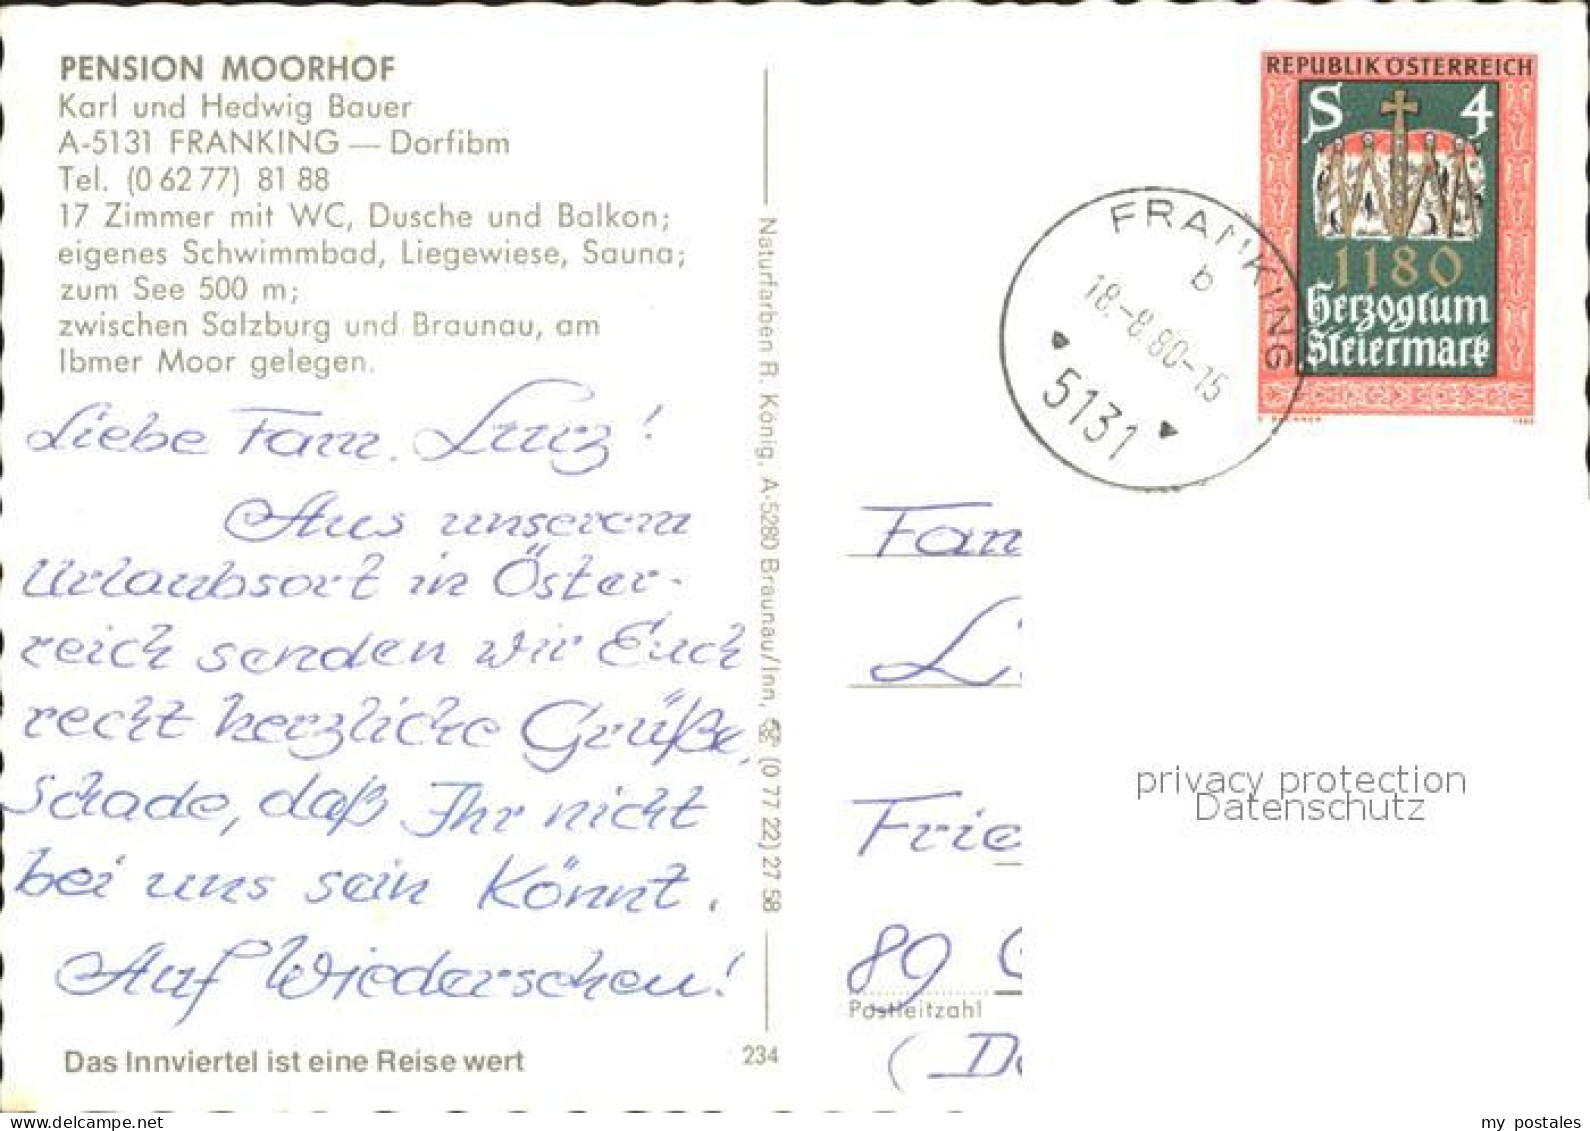 PENSION MOORHOF
Karl und Hedwig Bauer
A-5131 FRANKING — Dorfibm
Tel. (0 62 77) 81 88
17 Zimmer mit WC, Dusche und Balkon;
eigenes Schwimmbad, Liegewiese, Sauna;
zum See 500 m;
zwischen Salzburg und Braunau, am
Ibmer Moor gelegen.
Liebe Fam. Lurz!
Aus unserem
Urlaubsort in Öster-
reich senden wir Euch
recht herzliche Grüße,
schade, daß Ihr nicht
bei uns sein könnt.
Auf Wiedersehen!
Das Innviertel ist eine Reise wert
234
Naturfarben R. König, A-5280 Braunau/Inn, ☏ (0 77 22) 27 58
REPUBLIK ÖSTERREICH
S 4
1180
Herzogtum
Steiermark
1980
FRANKING
b
18.-8.80-15
5131
Fam
L
Frie
89
Postleitzahl
(D
privacy protection
Datenschutz
my postales